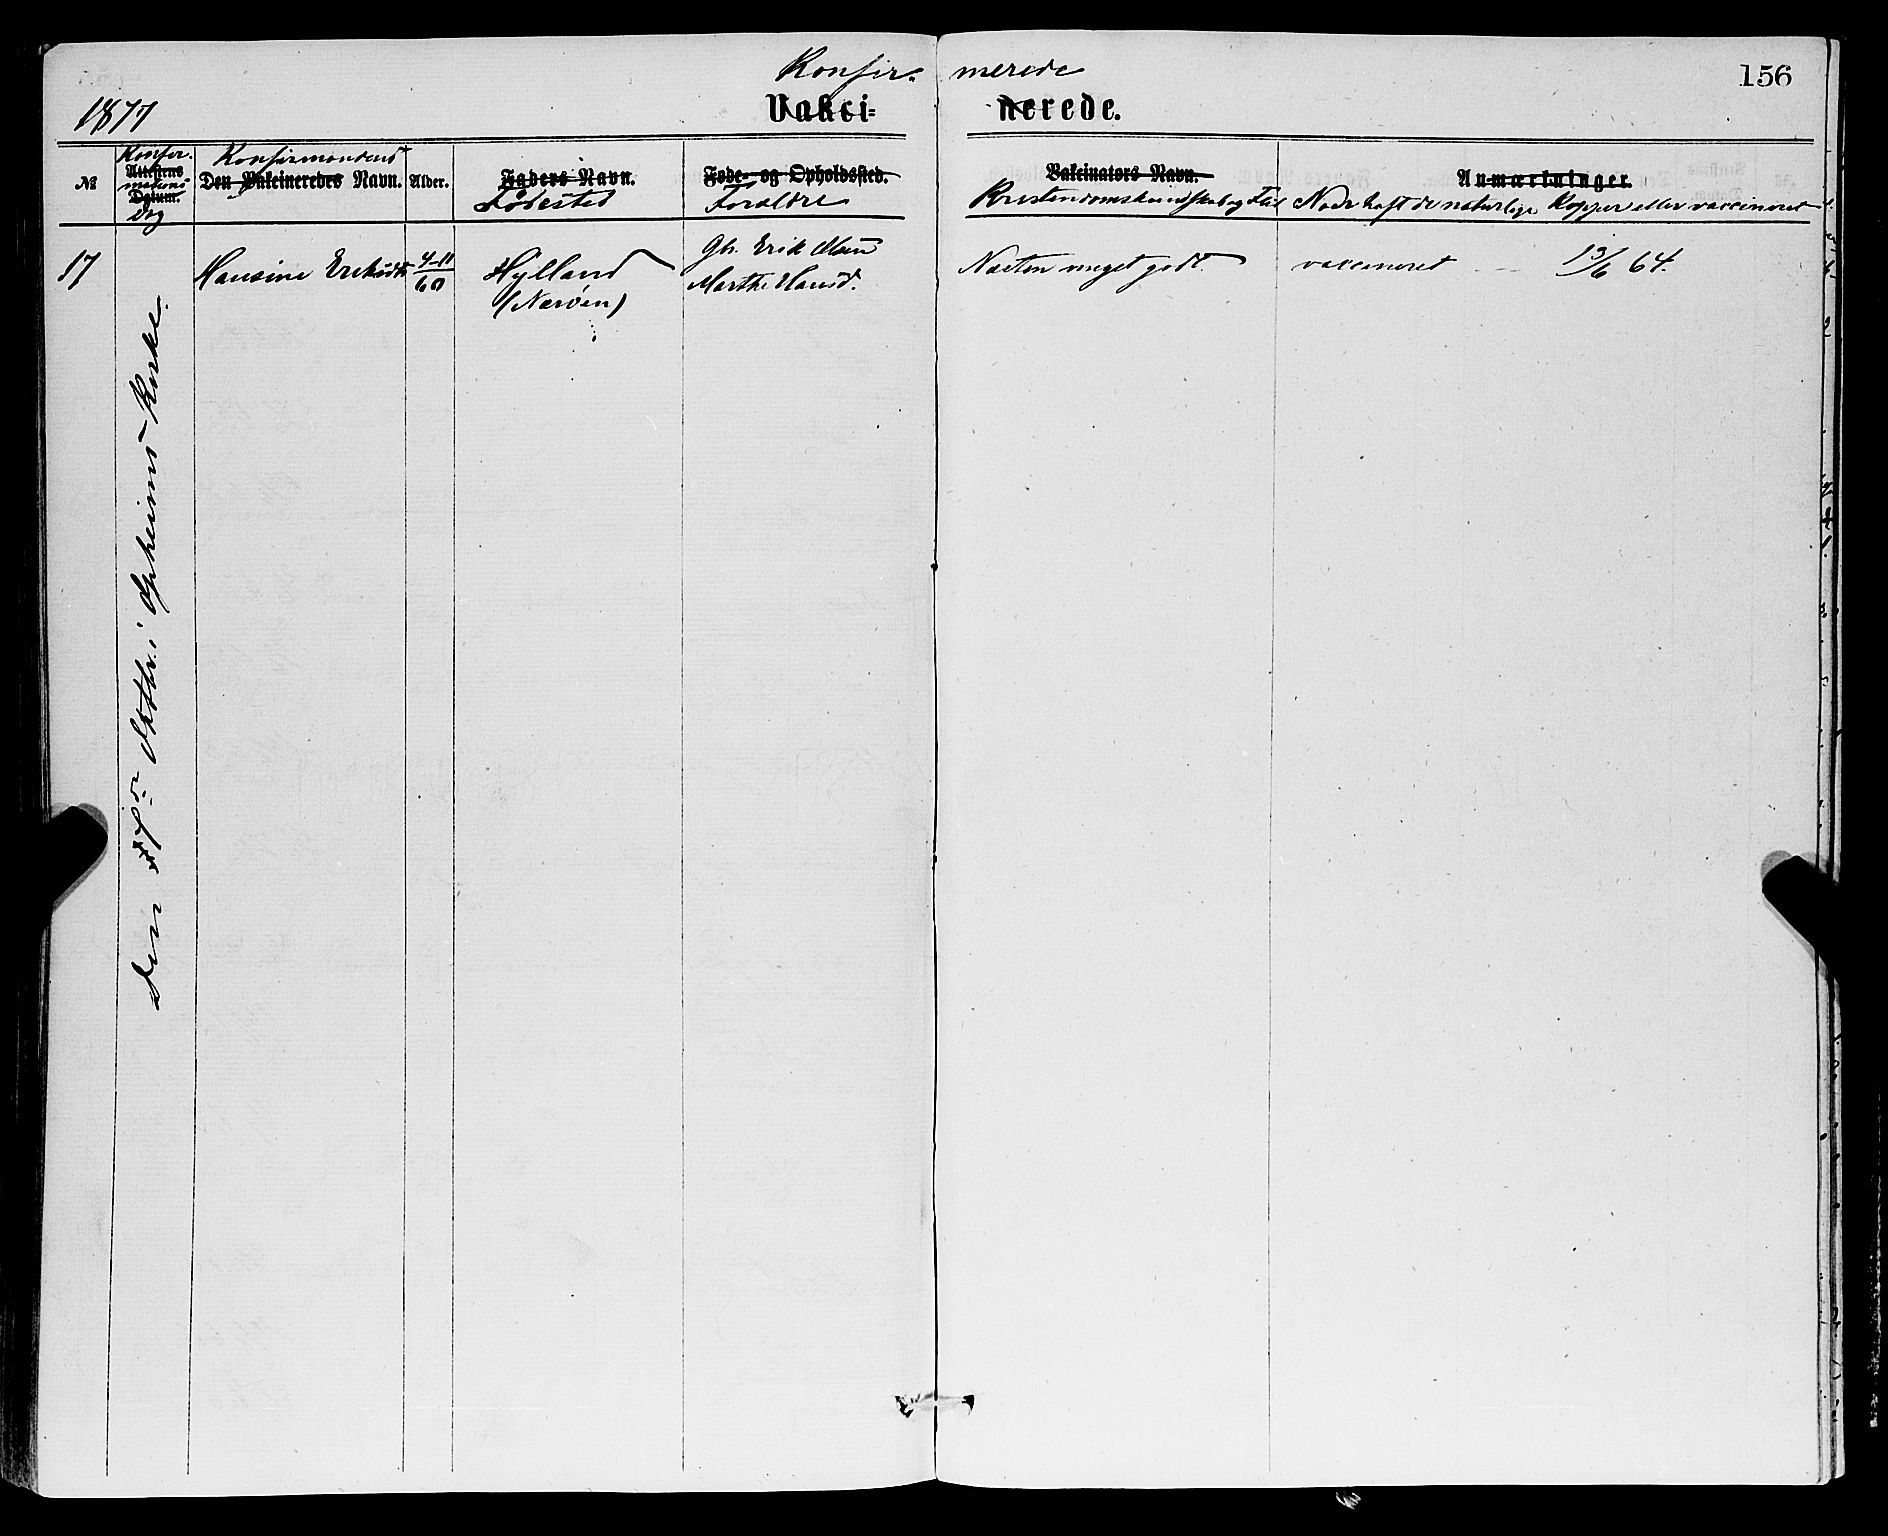 Konfir- merede
156
1877
Vakci- nerede.
Konfir.
Attestens
mations
Datum.
Dag
Konfirmandens
№ Den Vakcineredes Navn. Alder.
Faders Navn.
Fødested
Føde- og Opholdssted.
Forældre
Vakcinators Navn.
Kristendomskundskab og Flid
Anmærkninger.
Naar haft de naturlige Kopper eller vaccineret
17 Hansine Eriksdtr 4-11
60
Hylland
(Nærøen)
Gbr. Erik Olsen
Marthe Hansd.
Næsten meget godt.
vaccineret 13/6 64.
Den 7de Octbr. i Opheims Kirke.